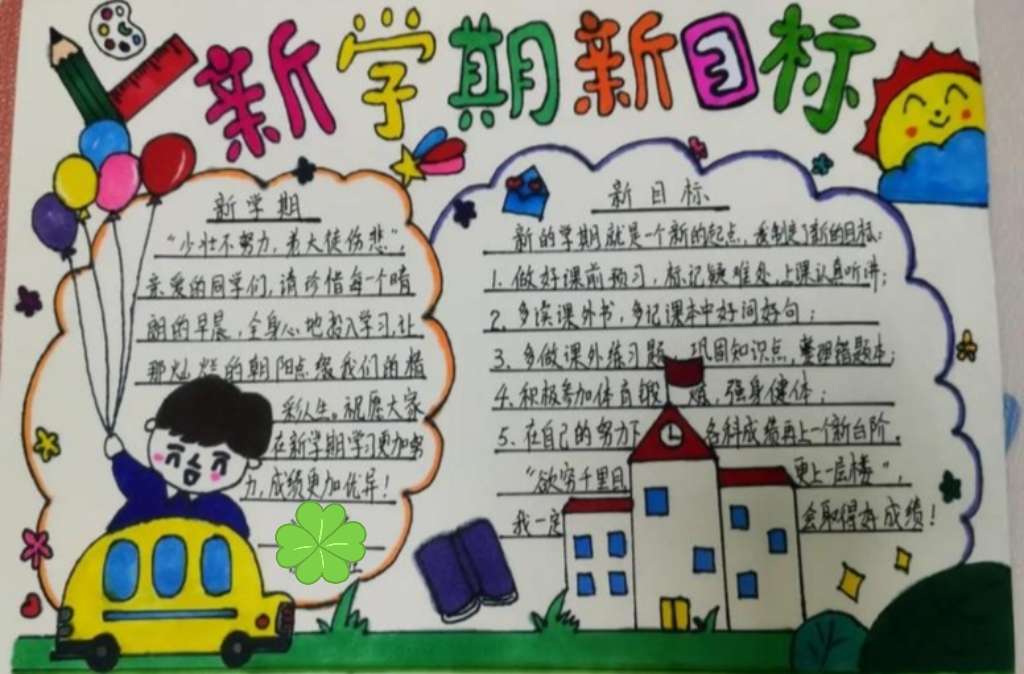 新学期新目标
新学期
“少壮不努力，老大徒伤悲”，
亲爱的同学们，请珍惜每一个晴
朗的早晨，全身心地投入学习，让
那灿烂的朝阳点缀我们的精
彩人生。祝愿大家
在新学期学习更加努
力，成绩更加优异！
新目标
新的学期就是一个新的起点，我制定了新的目标：
1. 做好课前预习，标记疑难处，上课认真听讲；
2. 多读课外书，多记课本中好词好句；
3. 多做课外练习题，巩固知识点，整理错题本；
4. 积极参加体育锻炼，强身健体；
5. 在自己的努力下 各科成绩再上一个新台阶。
“欲穷千里目 更上一层楼”，
我一定 会取得好成绩！